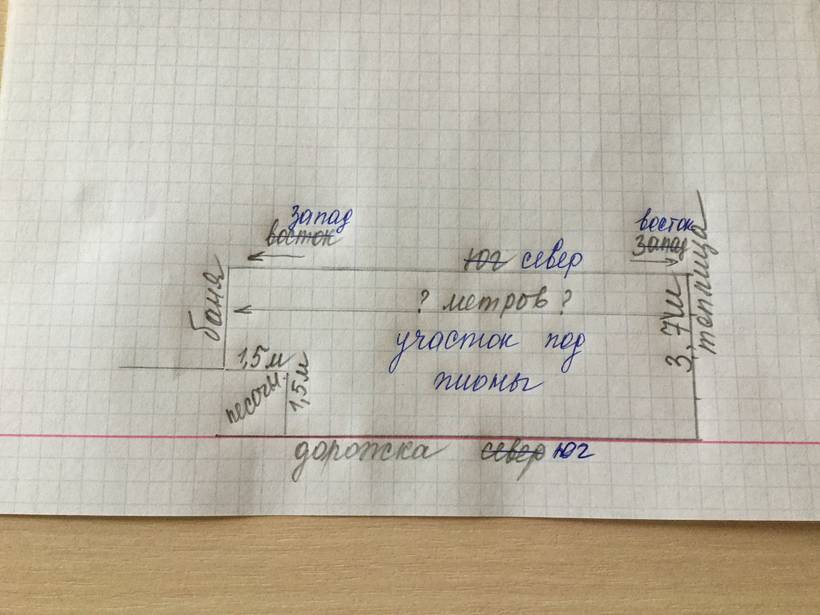 запад
восток
восток
запад
юг север
баня
? метров ?
3,7м
теплица
участок под
пионы
1,5м
1,5м
дорожка север юг